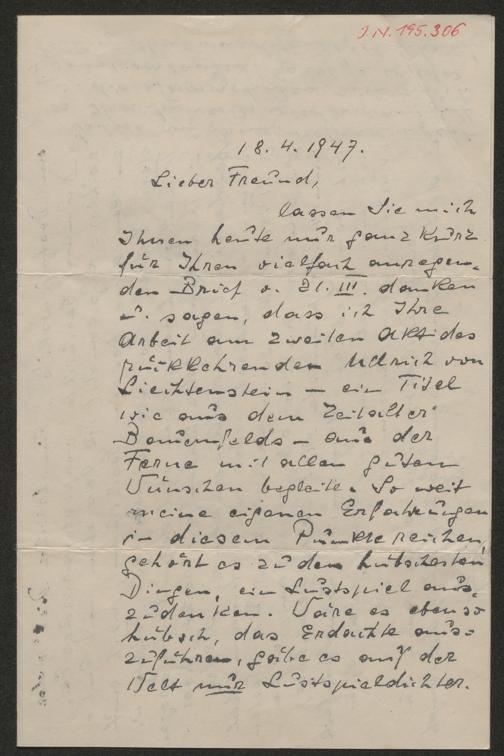 J.N. 195.306
18. 4. 1947.
Lieber Freund,
lassen Sie mich
Ihnen heute nur ganz kurz
für Ihren vielfach anregen-
den Brief v. 21. III. danken
u. sagen, dass ich Ihre
Arbeit am zweiten Akt des
rückkehrenden Ulrich von
Liechtenstein – ein Titel
wie aus dem Zeitalter
Bauernfelds – aus der
Ferne mit allen guten
Wünschen begleite. So weit
meine eigenen Erfahrungen
in diesem Punkte reichen,
gehört es zu den hübschesten
Dingen, ein Lustspiel aus-
zudenken. Wäre es ebenso
hübsch, das Erdachte aus-
zuführen, gäbe es auf der
Welt nur Lustspieldichter.